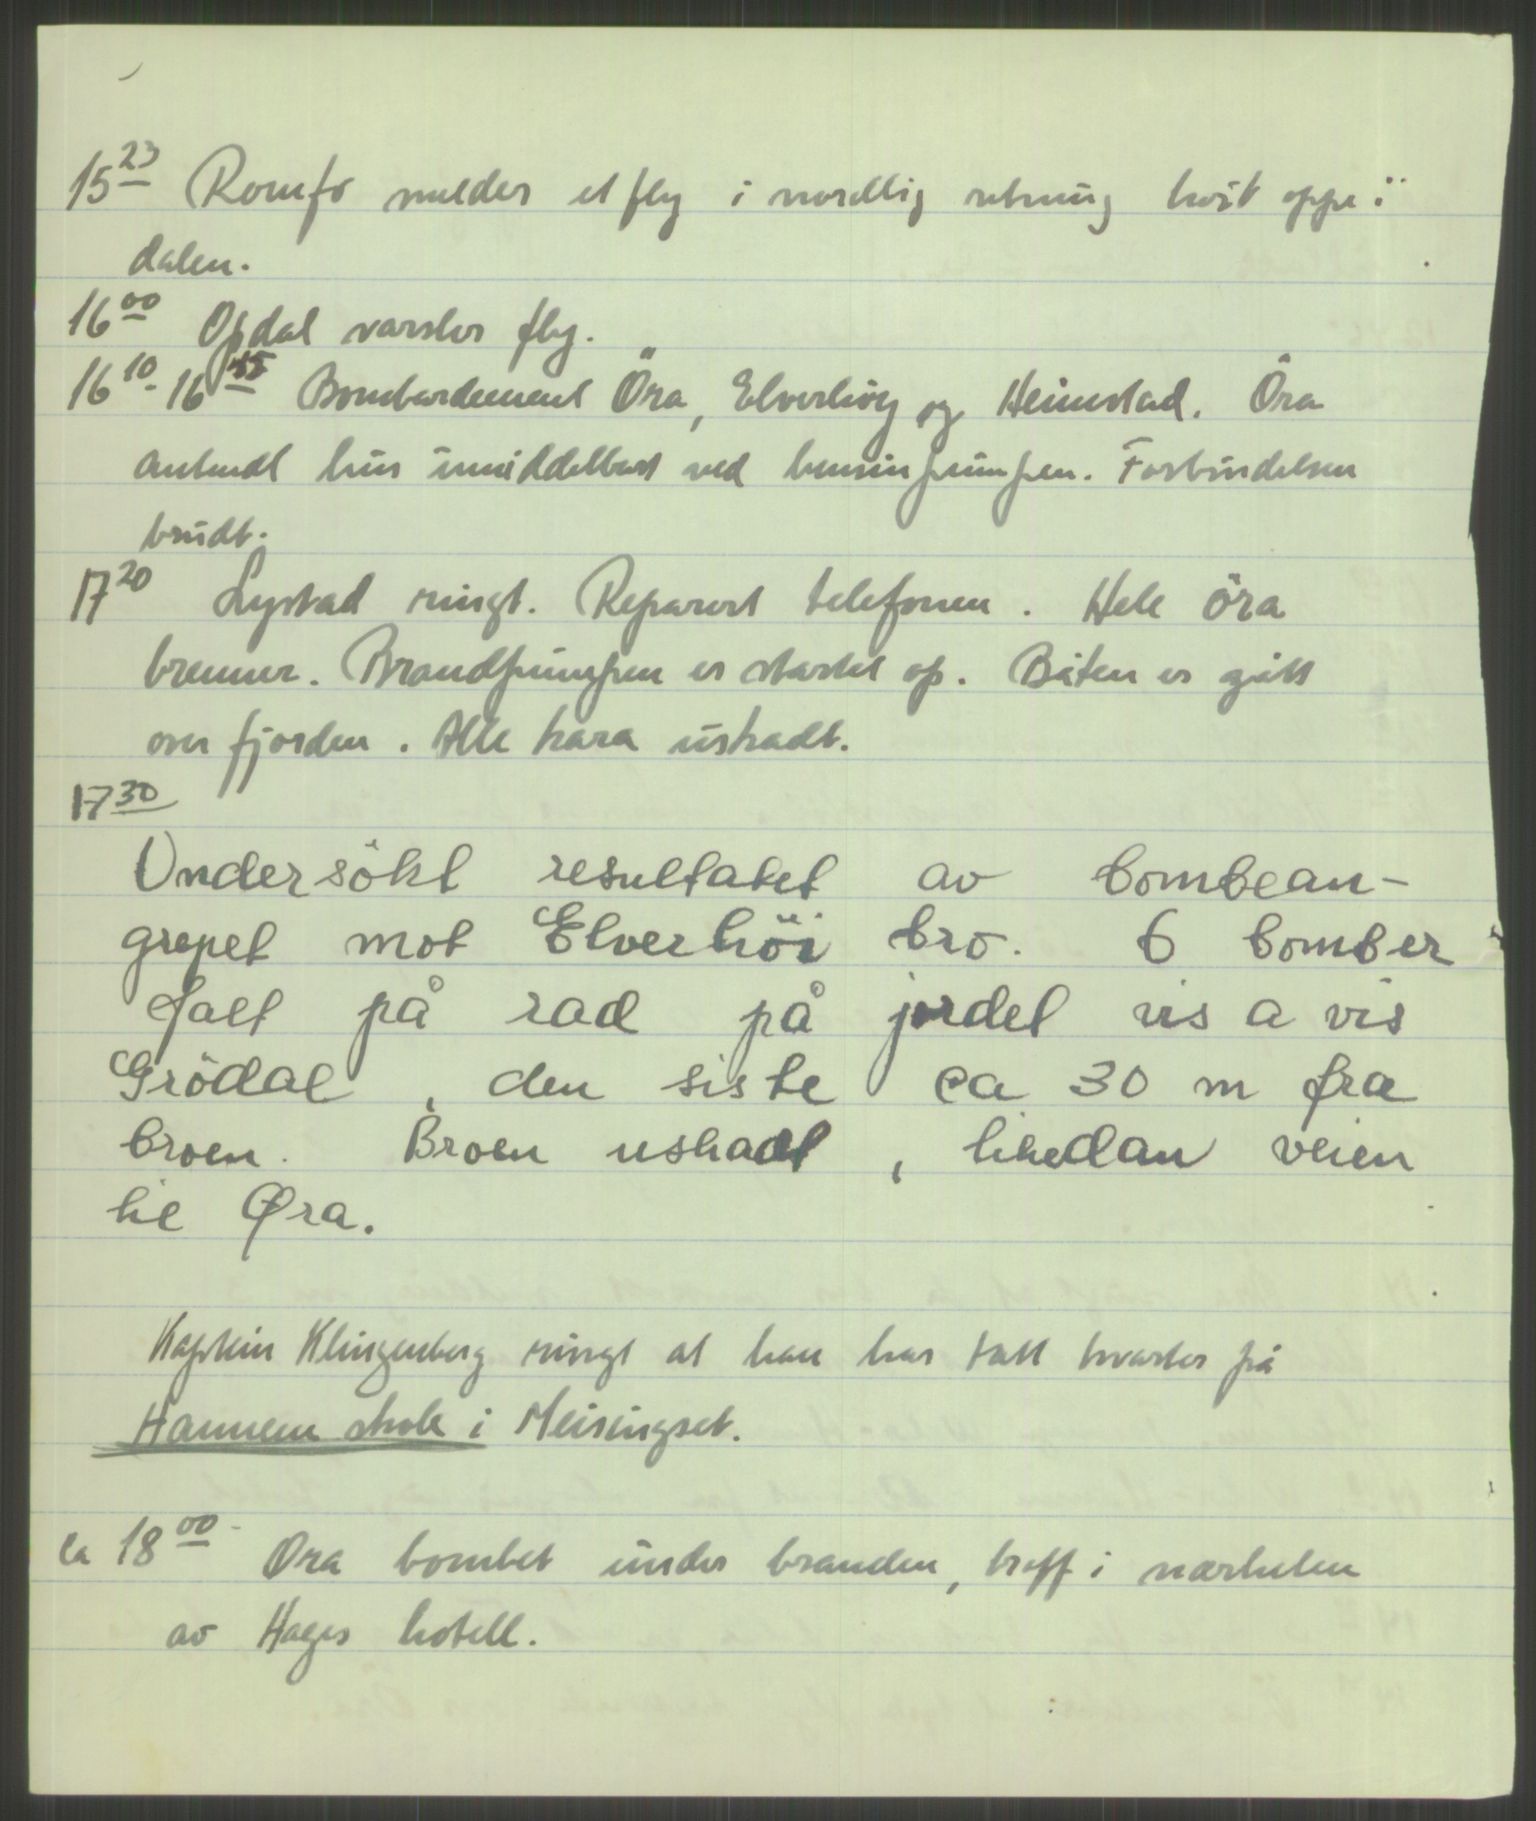 15²³ Romfo melder et fly i nordlig retning höit oppe i
dalen.
16⁰⁰ Opdal varsler fly.
16¹⁰-16⁴⁵ Bombardement Öra, Elverhöy og Heimstad. Öra
antendt hus umiddelbart ved bensinpumpen. Forbindelsen
brudt.
17²⁰ Lystad ringt. Reparert telefonen. Hele öra
brenner. Brandpumpen er startet op. Båten er gått
over fjorden. Alle kara uskadt.
17³⁰
Undersökt resultatet av bombean-
grepet mot Elverhöi bro. 6 bomber
falt på rad på jordet vis a vis
Grödal, den siste ca 30 m fra
broen. Broen uskadt, likedan veien
til Øra.
Kaptein Klingenberg ringt at han har tatt kvarter på
Hannem skole i Meisingset.
ca 18⁰⁰ Öra bombet under branden, treff i nærheten
av Hages hotell.